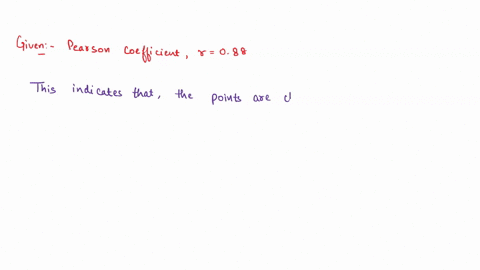 Given:- Pearson Coefficient, r = 0.88
This indicates that, the points are